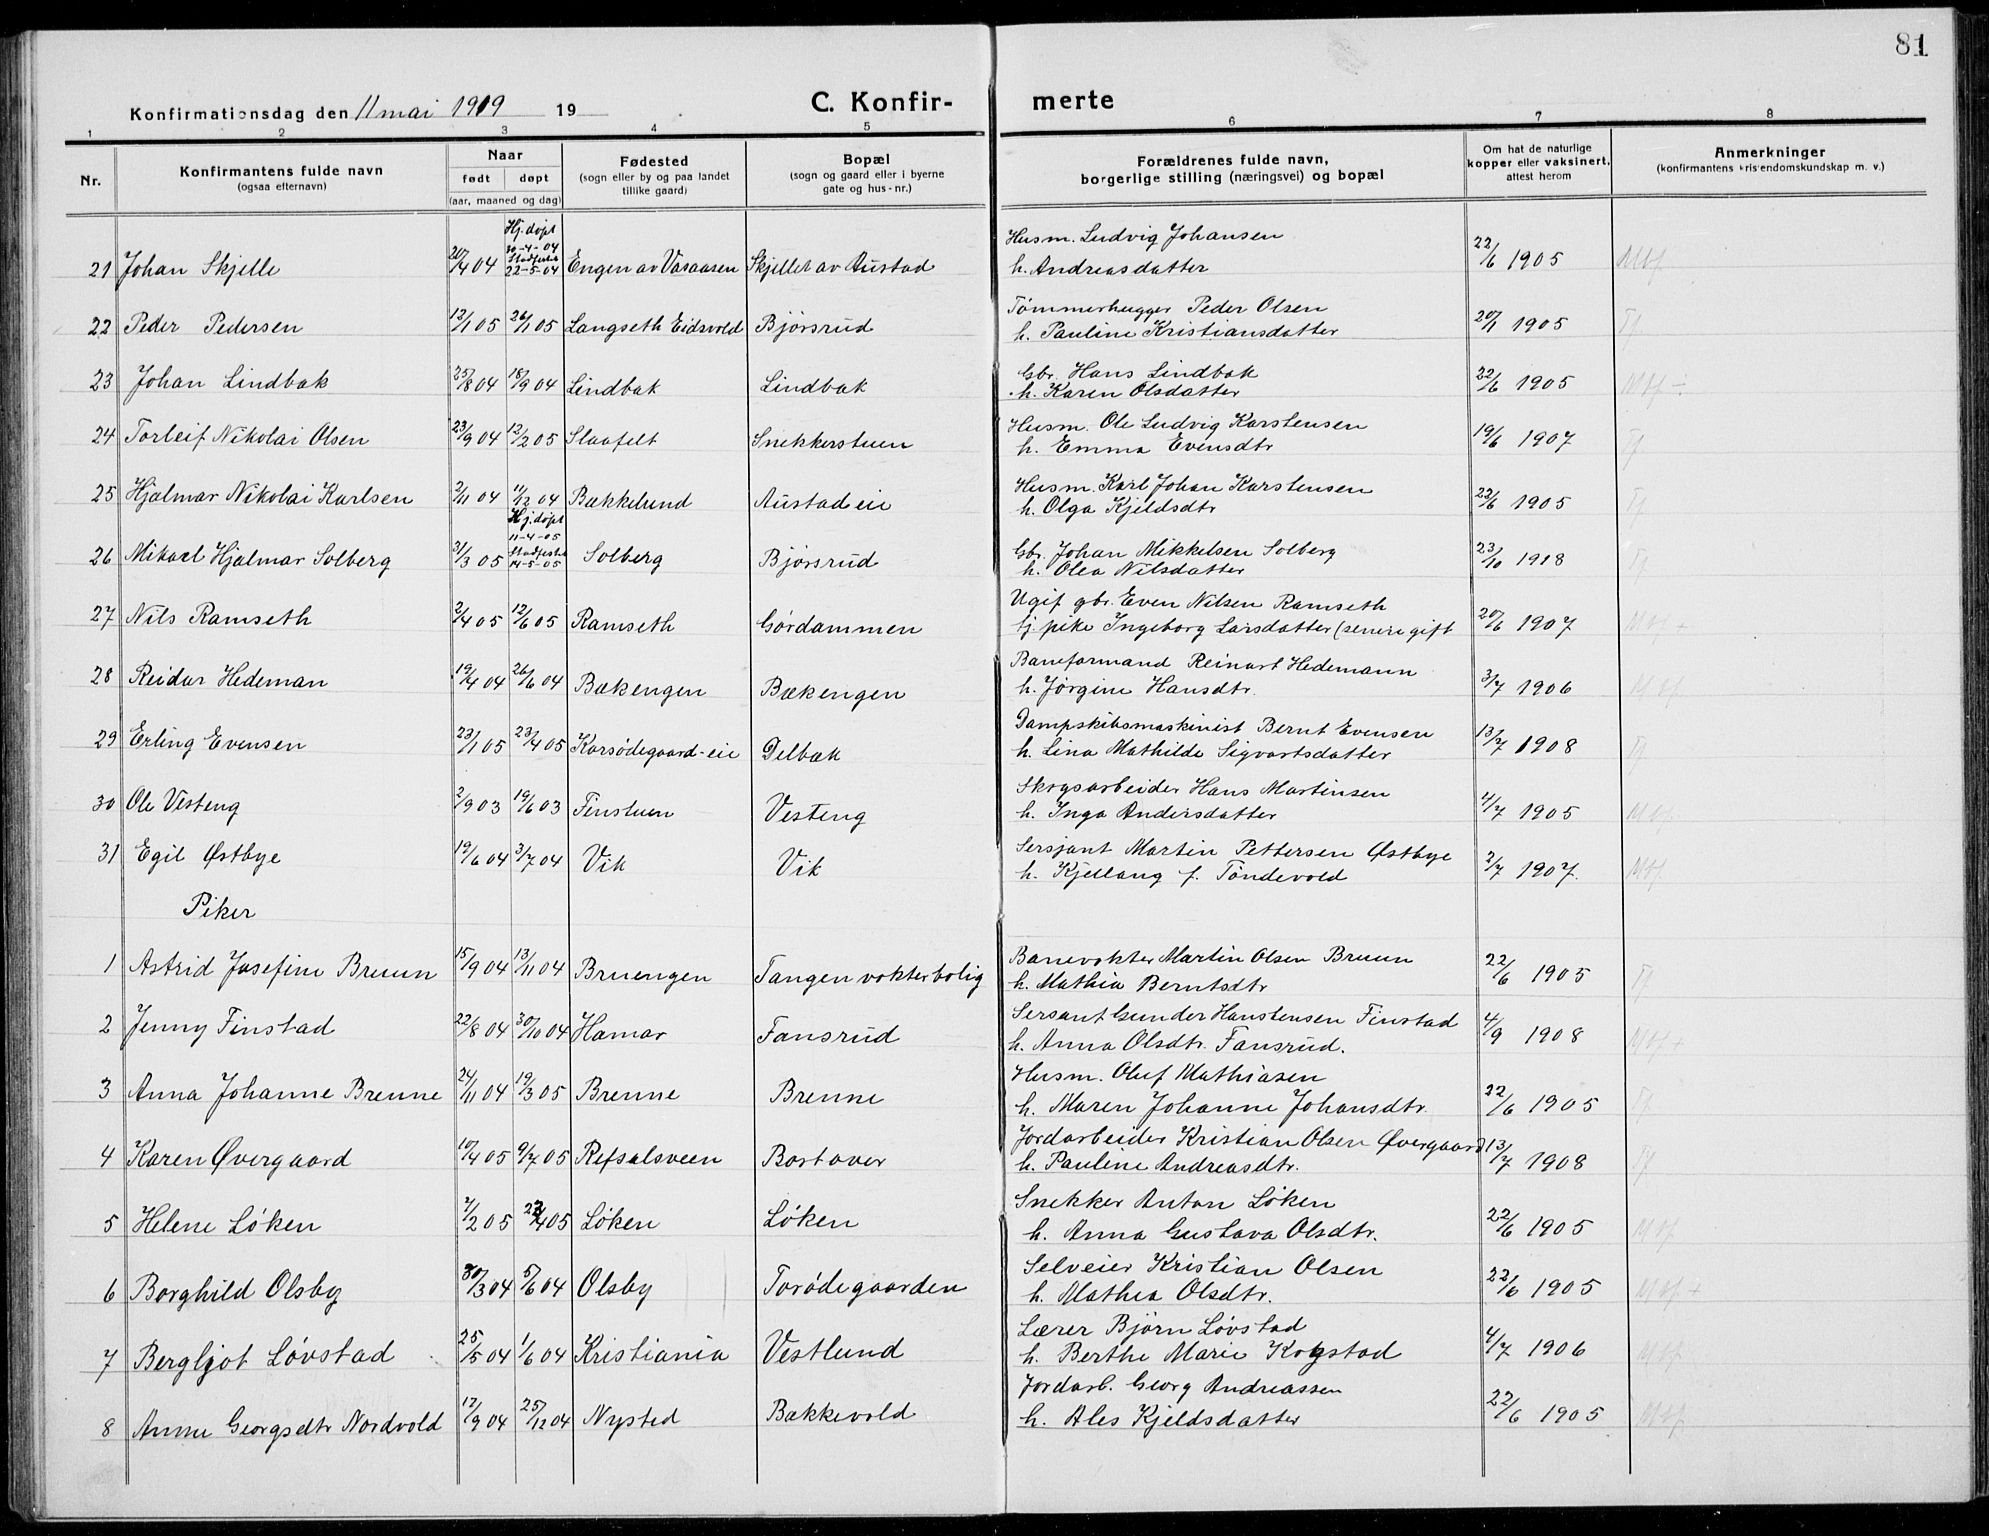 81
C. Konfirmerte
Konfirmationsdag den 11 mai 1919 19
1 2 3 4 5 6 7 8
Nr.
Konfirmantens fulde navn
(ogsaa efternavn)
Naar
født døpt
(aar, maaned og dag)
Fødested
(sogn eller by og paa landet
tillike gaard)
Bopæl
(sogn og gaard eller i byerne
gate og hus-nr.)
Forældrenes fulde navn,
borgerlige stilling (næringsvei) og bopæl
Om hat de naturlige
kopper eller vaksinert,
attest herom
Anmerkninger
(konfirmantens kristendomskundskap m. v.)
21 Johan Skjelle 20/4 04 Hj. døpt 30-4-04 Stadfestet 22-5-04 Engen av Vasaasen Skjellet av Austad Husm. Ludvig Johansen
h. Andreasdatter 22/6 1905 Mtf
22 Peder Pedersen 12/1 05 26/1 05 Langseth Eidsvold Bjørsrud Tømmerhugger Peder Olsen
h. Pauline Kristiansdatter 20/1 1905 Tf
23 Johan Lindbak 25/8 04 18/9 04 Lindbak Lindbak Gbr. Hans Lindbak
h. Karen Olsdatter 22/6 1905 Mtf ÷
24 Torleif Nikolai Olsen 23/9 04 12/2 05 Slaafelt Snekkerstuen Husm. Ole Ludvig Karstensen
h. Emma Evensdtr 19/6 1907 Tf
25 Hjalmar Nikolai Karlsen 2/11 04 11/12 04 Bakkelund Austad eie Husm. Karl Johan Karstensen
h. Olga Kjeldsdtr 22/6 1905 Tf
26 Mikael Hjalmar Solberg 31/3 05 Hj. døpt 11-4-05 Stadfestet 14-5-05 Solberg Bjørsrud Gbr. Johan Mikkelsen Solberg
h. Olea Nilsdatter 23/10 1918 Tf
27 Nils Ramseth 2/4 05 12/6 05 Ramseth Gørdammen Ugif gbr. Even Nilsen Ramseth
tj. pike Ingeborg Larsdatter (senere gift 20/6 1907 Mtf +
28 Reidar Hedeman 19/4 04 26/6 04 Bækengen Bækengen Baneformand Reinart Hedemann
h. Jørgine Hansdtr. 3/7 1906 Mtf
29 Erling Evensen 23/1 05 23/4 05 Korsødegaard-eie Delbæk Dampskibsmaskinist Bernt Evensen
h. Lina Mathilde Sigvartsdatter 13/7 1908 Tf
30 Ole Vesteng 2/9 03 19/6 03 Finstuen Vesteng Skogsarbeider Hans Martinsen
h. Inga Andersdatter 4/7 1905 Mtf
31 Egil Østbye 19/6 04 3/7 04 Vik Vik Sersjant Martin Pettersen Østbye
h. Kjellaug f. Tøndevold 2/7 1907. Mtf
Piker
1 Astrid Josefine Bruun 15/9 04 13/11 04 Bruengen Tangen vokterbolig Banevokter Martin Olsen Bruun
h. Mathia Berntsdtr 22/6 1905 Tf
2 Jenny Finstad 22/8 04 30/10 04 Hamar Fansrud Sersant Gunder Hanstensen Finstad
h. Anna Olsdtr. Fansrud. 4/9 1908 Mtf +
3 Anna Johanne Brenne 24/11 04 19/3 05 Brenne Brenne Husm. Oluf Mathiasen
h. Maren Johanne Johansdtr. 22/6 1905 Tf
4 Karen Øvergaard 10/4 05 9/7 05 Refsalsveen Bortover Jordarbeider Kristian Olsen Øvergaard
h. Pauline Andreasdtr. 13/7 1908 Tf
5 Helene Løken 7/2 05 23/4 05 Løken Løken Snekker Anton Løken
h. Anna Gustava Olsdtr. 22/6 1905 Mtf
6 Borghild Olsby 30/3 04 5/6 04 Olsby Torødegaarden Selveier Kristian Olsen
h. Mathea Olsdtr. 22/6 1905 Mtf +
7 Bergljot Løvstad 25/5 04 1/6 04 Kristiania Vestlund Lærer Bjørn Løvstad
h. Berthe Marie Kogstad 4/7 1906 Mtf
8 Anne Georgsdtr Nordvold 17/9 04 25/12 04 Nysted Bakkevold Jordarb. Georg Andreassen
h. Ales Kjeldsdatter 22/6 1905 Mtf